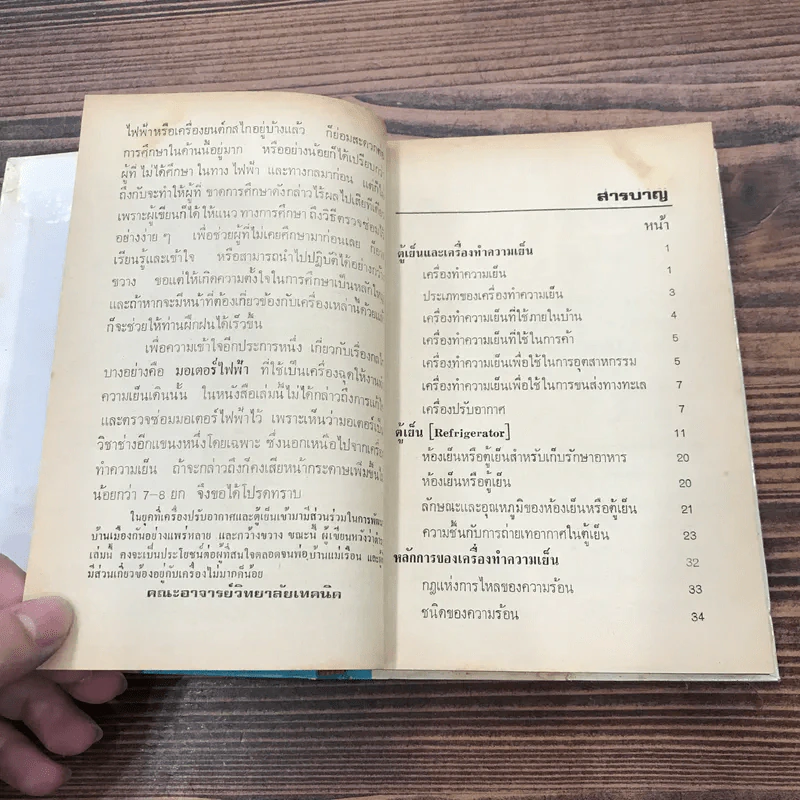 ไฟฟ้าหรือเครื่องยนต์กลไกอยู่บ้างแล้ว ก็ย่อมสะดวก
การศึกษาในด้านนี้อยู่มาก หรืออย่างน้อยก็ได้เปรียบ
ผู้ที่ไม่ได้ศึกษา ในทาง ไฟฟ้า และทางกลมาก่อน
ถึงกับจะทำให้ผู้ที่ ขาดการศึกษาดังกล่าวไร้ผลไปเสียทีเดียว
เพราะผู้เขียนก็ได้ให้แนว ทางการศึกษา ถึงวิธีตรวจซ่อม
อย่างง่าย ๆ เพื่อช่วยผู้ที่ไม่เคยศึกษามาก่อนเลย
เรียนรู้และเข้าใจ หรือสามารถนำไปปฏิบัติได้อย่าง
ขวาง ขอแต่ให้เกิดความตั้งใจในการศึกษาเป็นหลักใหญ่
และถ้าหากจะมีหน้าที่ต้องเกี่ยวข้องกับเครื่องเหล่านี้ด้วยแล้ว
ก็จะช่วยให้ท่านฝึกฝนได้เร็วขึ้น
เพื่อความเข้าใจอีกประการหนึ่ง เกี่ยวกับเรื่องกลไก
บางอย่างคือ มอเตอร์ไฟฟ้า ที่ใช้เป็นเครื่องฉุดให้งาน
ความเย็นเดินนั้น ในหนังสือเล่มนี้ไม่ได้กล่าวถึงการแก้ไข
และตรวจซ่อมมอเตอร์ไฟฟ้าไว้ เพราะเห็นว่ามอเตอร์เป็น
วิชาช่างอีกแขนงหนึ่งโดยเฉพาะ ซึ่งนอกเหนือไปจากเครื่อง
ทำความเย็น ถ้าจะกล่าวถึงก็คงเสียหน้ากระดาษเพิ่มขึ้นไม่
น้อยกว่า 7-8 ยก จึงขอได้โปรดทราบ
ในยุคที่เครื่องปรับอากาศและตู้เย็นเข้ามามีส่วนร่วมในการพัฒนา
บ้านเมืองกันอย่างแพร่หลาย และกว้างขวาง ขณะนี้ ผู้เขียนหวังว่าตำรา
เล่มนี้ คงจะเป็นประโยชน์ต่อผู้ที่สนใจตลอดจนพ่อบ้านแม่เรือน
มีส่วนเกี่ยวข้องอยู่กับเครื่องไม่มากก็น้อย
คณะอาจารย์วิทยาลัยเทคนิค
สารบาญ
หน้า
ตู้เย็นและเครื่องทำความเย็น 1
เครื่องทำความเย็น 1
ประเภทของเครื่องทำความเย็น 3
เครื่องทำความเย็นที่ใช้ภายในบ้าน 4
เครื่องทำความเย็นที่ใช้ในการค้า 5
เครื่องทำความเย็นเพื่อใช้ในการอุตสาหกรรม 5
เครื่องทำความเย็นเพื่อใช้ในการขนส่งทางทะเล 7
เครื่องปรับอากาศ 7
ตู้เย็น [Refrigerator] 11
ห้องเย็นหรือตู้เย็นสำหรับเก็บรักษาอาหาร 20
ห้องเย็นหรือตู้เย็น 20
ลักษณะและอุณหภูมิของห้องเย็นหรือตู้เย็น 21
ความชื้นกับการถ่ายเทอากาศในตู้เย็น 23
หลักการของเครื่องทำความเย็น 32
กฎแห่งการไหลของความร้อน 33
ชนิดของความร้อน 34